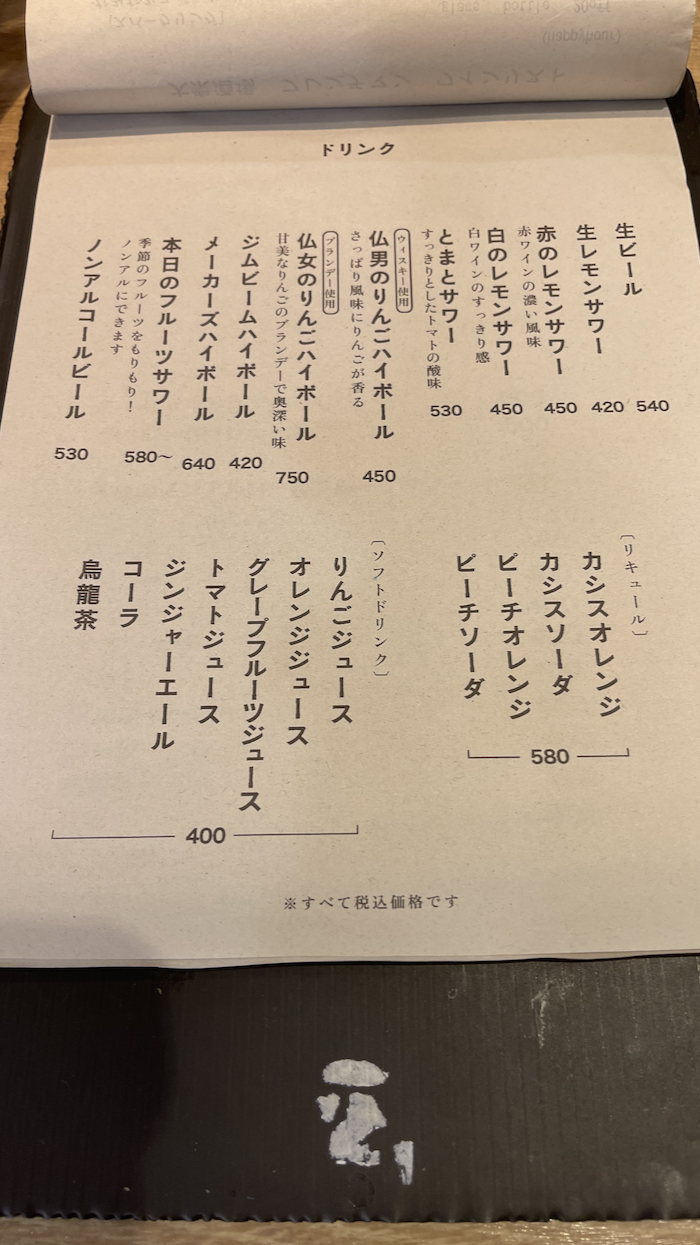 ドリンク
生ビール
540
生レモンサワー
420
赤のレモンサワー
赤ワインの濃い風味
450
白のレモンサワー
白ワインのすっきり感
450
とまとサワー
すっきりとしたトマトの酸味
530
ウィスキー使用
仏男のりんごハイボール
さっぱり風味にりんごが香る
450
ブランデー使用
仏女のりんごハイボール
甘美なりんごのブランデーで奥深い味
750
ジムビームハイボール
420
メーカーズハイボール
640
本日のフルーツサワー
季節のフルーツをもりもり！
ノンアルにできます
580〜
ノンアルコールビール
530
〔リキュール〕
カシスオレンジ
カシスソーダ
ピーチオレンジ
ピーチソーダ
580
〔ソフトドリンク〕
りんごジュース
オレンジジュース
グレープフルーツジュース
トマトジュース
ジンジャーエール
コーラ
烏龍茶
400
※すべて税込価格です